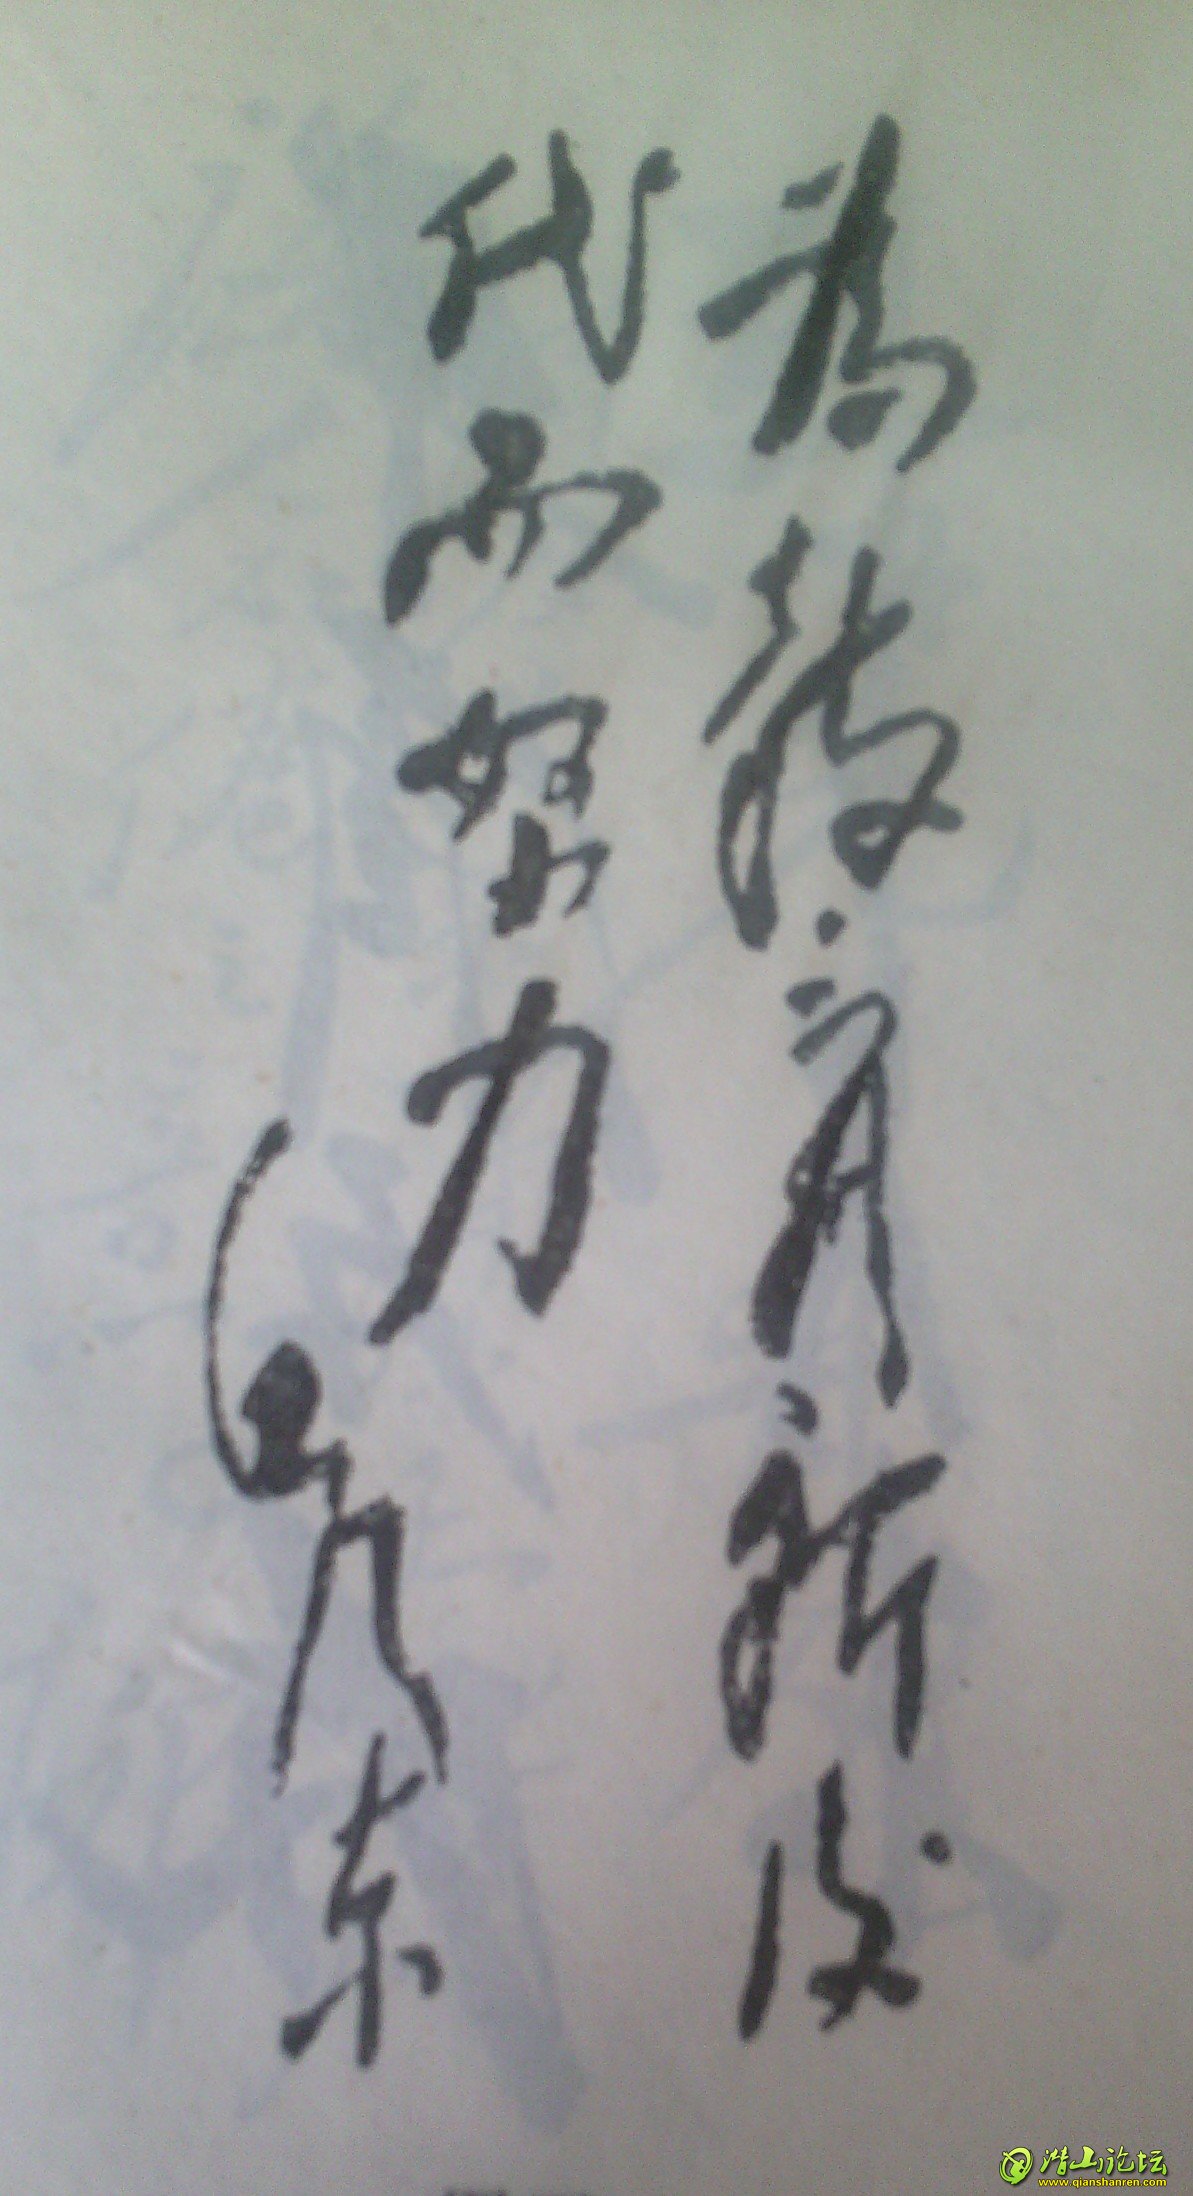 为教育新後
代而努力
毛泽东
潜山论坛
www.qianshanren.com